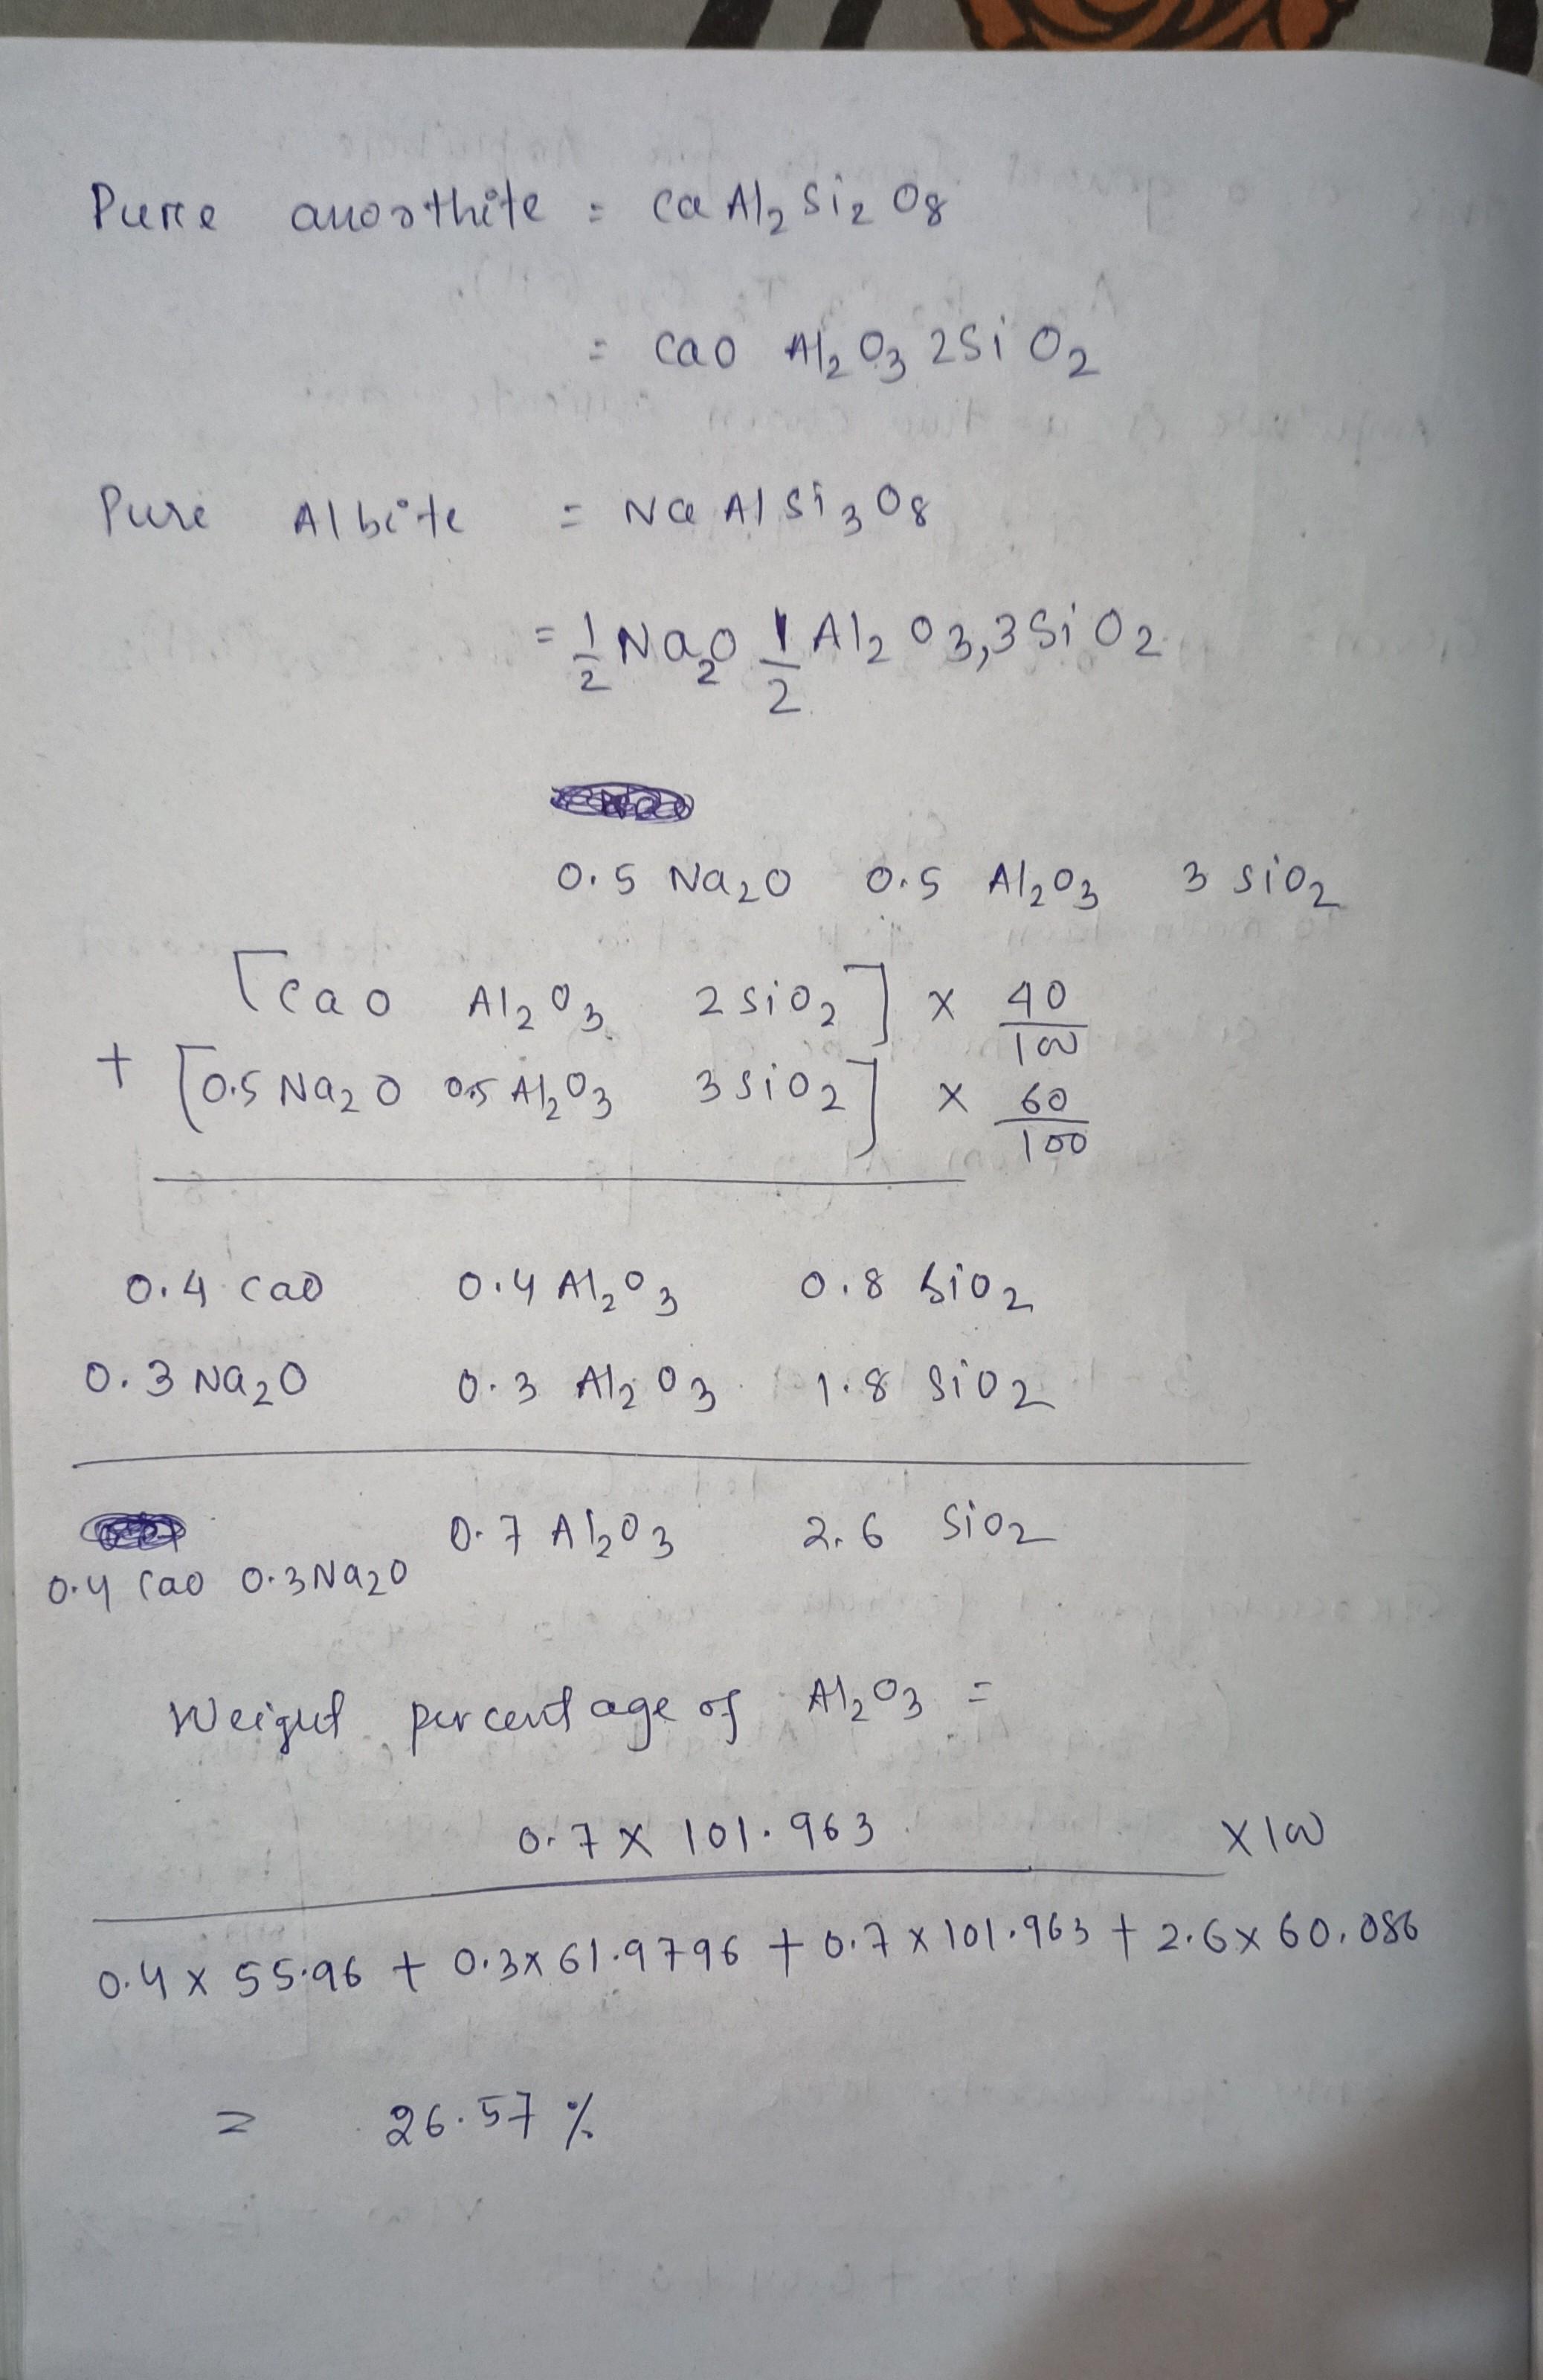 Pure anorthite = Ca Al2 Si2 O8
= CaO Al2 O3 2Si O2
Pure Albite = Na Al Si3 O8
= 1/2 Na2O 1/2 Al2 O3, 3 Si O2
0.5 Na2O 0.5 Al2O3 3 SiO2
[CaO Al2O3 2 SiO2] × 40/100
+ [0.5 Na2O 0.5 Al2O3 3 SiO2] × 60/100
0.4 CaO 0.4 Al2O3 0.8 SiO2
0.3 Na2O 0.3 Al2O3 1.8 SiO2
0.7 Al2O3 2.6 SiO2
0.4 CaO 0.3 Na2O
Weight percentage of Al2O3 =
0.7 × 101.963 × 100
0.4 × 55.96 + 0.3 × 61.9796 + 0.7 × 101.963 + 2.6 × 60.086
= 26.57 %